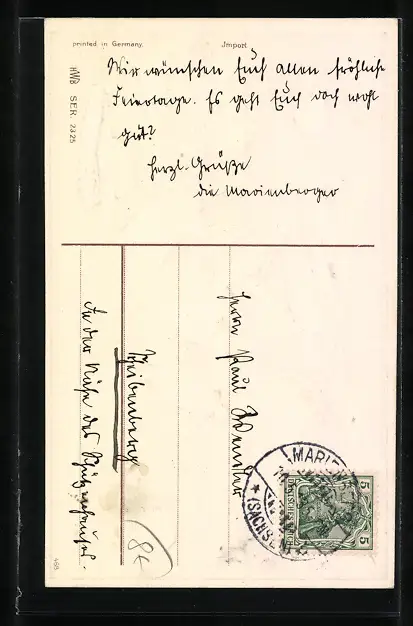 printed in Germany.
Import
HWB SER. 2325
Wir wünschen Euch allen fröhliche
Feiertage. Es geht Euch doch wohl
gut?
Herzl. Grüße
die Marienberger
Herrn Paul
Scheibenberg
In der Nähe des Schützenhauses.
MARIE
(SACHSE
DEUTSCHES REICH
5
5
8x
468